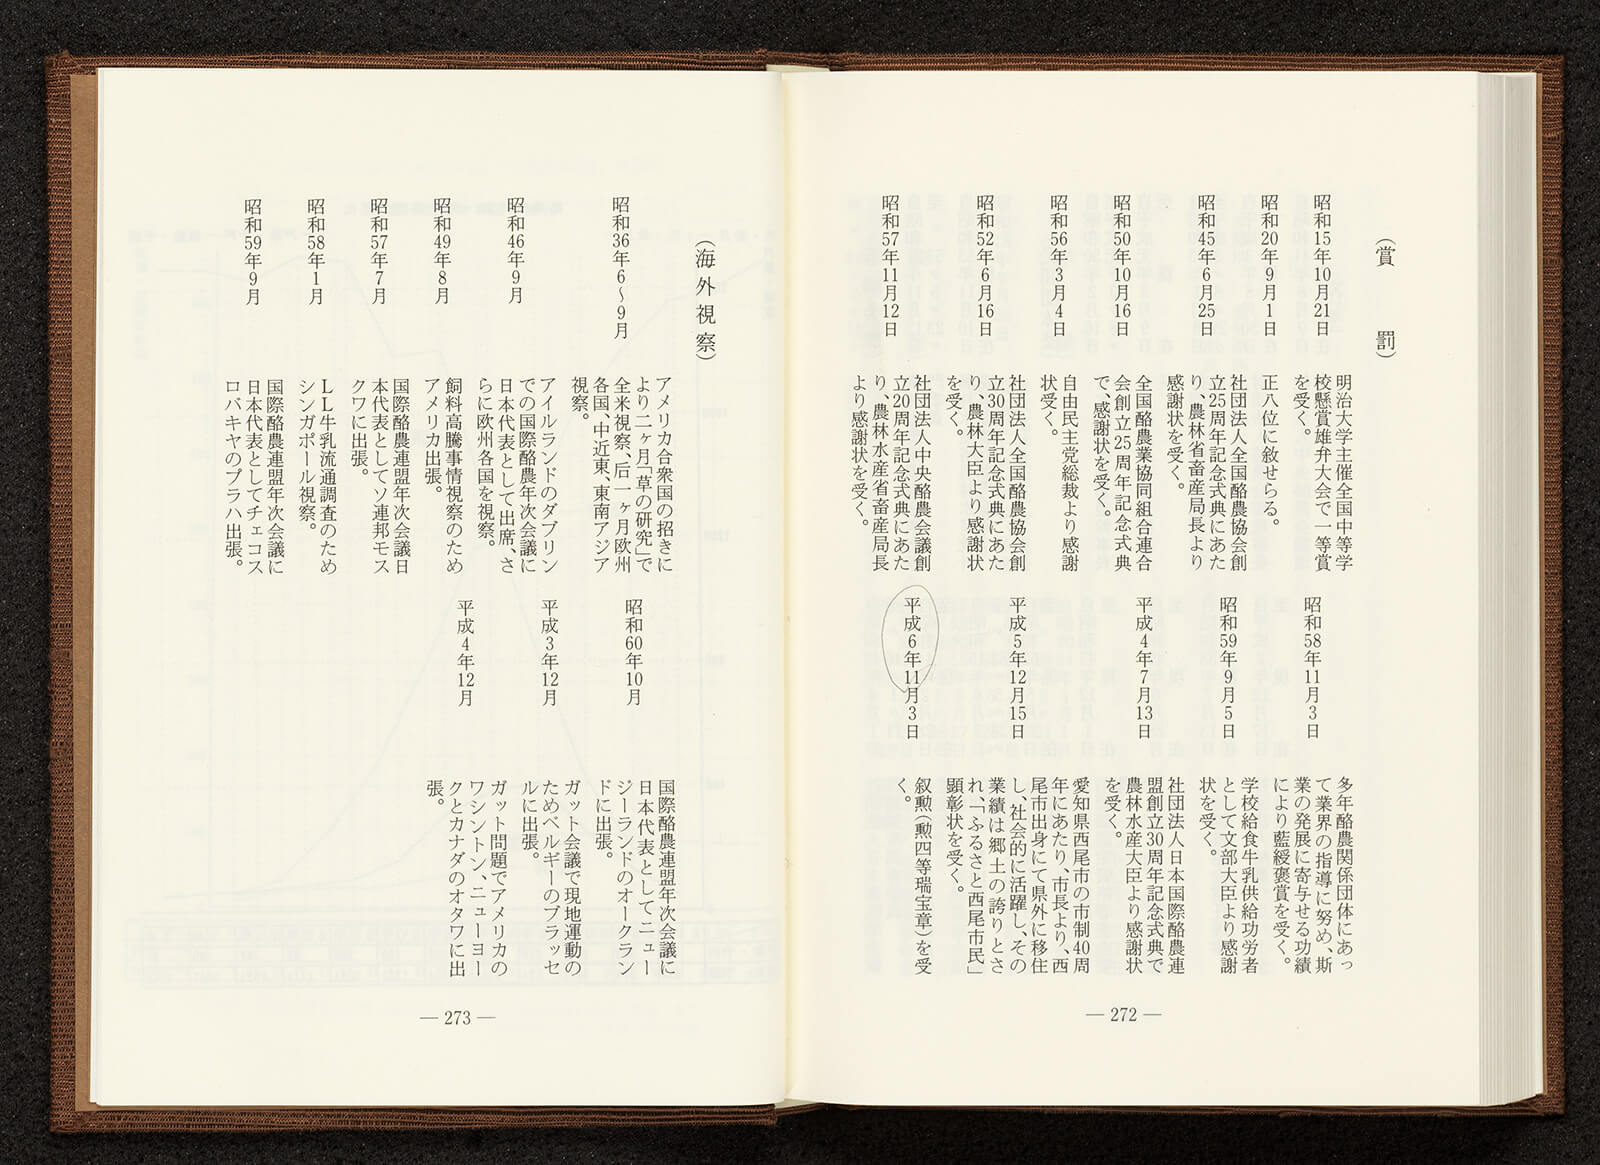 (賞罰)
昭和15年10月21日
明治大学主催全国中等学
校懸賞雄弁大会で一等賞
を受く。
昭和20年9月1日
正八位に敘せらる。
昭和45年6月25日
社団法人全国酪農協会創
立25周年記念式典にあた
り、農林省畜産局長より
感謝状を受く。
昭和50年10月16日
全国酪農業協同組合連合
会創立25周年記念式典
で、感謝状を受く。
昭和56年3月4日
自由民主党総裁より感謝
状受く。
昭和52年6月16日
社団法人全国酪農協会創
立30周年記念式典にあた
り、農林大臣より感謝状
を受く。
昭和57年11月12日
社団法人中央酪農会議創
立20周年記念式典にあた
り、農林水産省畜産局長
より感謝状を受く。
昭和58年11月3日
多年酪農関係団体にあっ
て業界の指導に努め、斯
業の発展に寄与せる功績
により藍綬褒賞を受く。
昭和59年9月5日
学校給食牛乳供給功労者
として文部大臣より感謝
状を受く。
平成4年7月13日
社団法人日本国際酪農連
盟創立30周年記念式典で
農林水産大臣より感謝状
を受く。
平成5年12月15日
愛知県西尾市の市制40周
年にあたり、市長より、西
尾市出身にて県外に移住
し、社会的に活躍し、その
業績は郷土の誇りとさ
れ、「ふるさと西尾市民」
顕彰状を受く。
平成6年11月3日
叙勲(勲四等瑞宝章)を受
く。
— 272 —
(海外視察)
昭和36年6～9月
アメリカ合衆国の招きに
より二ヶ月「草の研究」で
全米視察、后一ヶ月欧州
各国、中近東、東南アジア
視察。
昭和46年9月
アイルランドのダブリン
での国際酪農年次会議に
日本代表として出席、さ
らに欧州各国を視察。
昭和49年8月
飼料高騰事情視察のため
アメリカ出張。
昭和57年7月
国際酪農連盟年次会議日
本代表としてソ連邦モス
クワに出張。
昭和58年1月
LL牛乳流通調査のため
シンガポール視察。
昭和59年9月
国際酪農連盟年次会議に
日本代表としてチェコス
ロバキヤのプラハ出張。
昭和60年10月
国際酪農連盟年次会議に
日本代表としてニュー
ジーランドのオークラン
ドに出張。
平成3年12月
ガット会議で現地運動の
ためベルギーのブラッセ
ルに出張。
平成4年12月
ガット問題でアメリカの
ワシントン、ニューヨー
クとカナダのオタワに出
張。
— 273 —